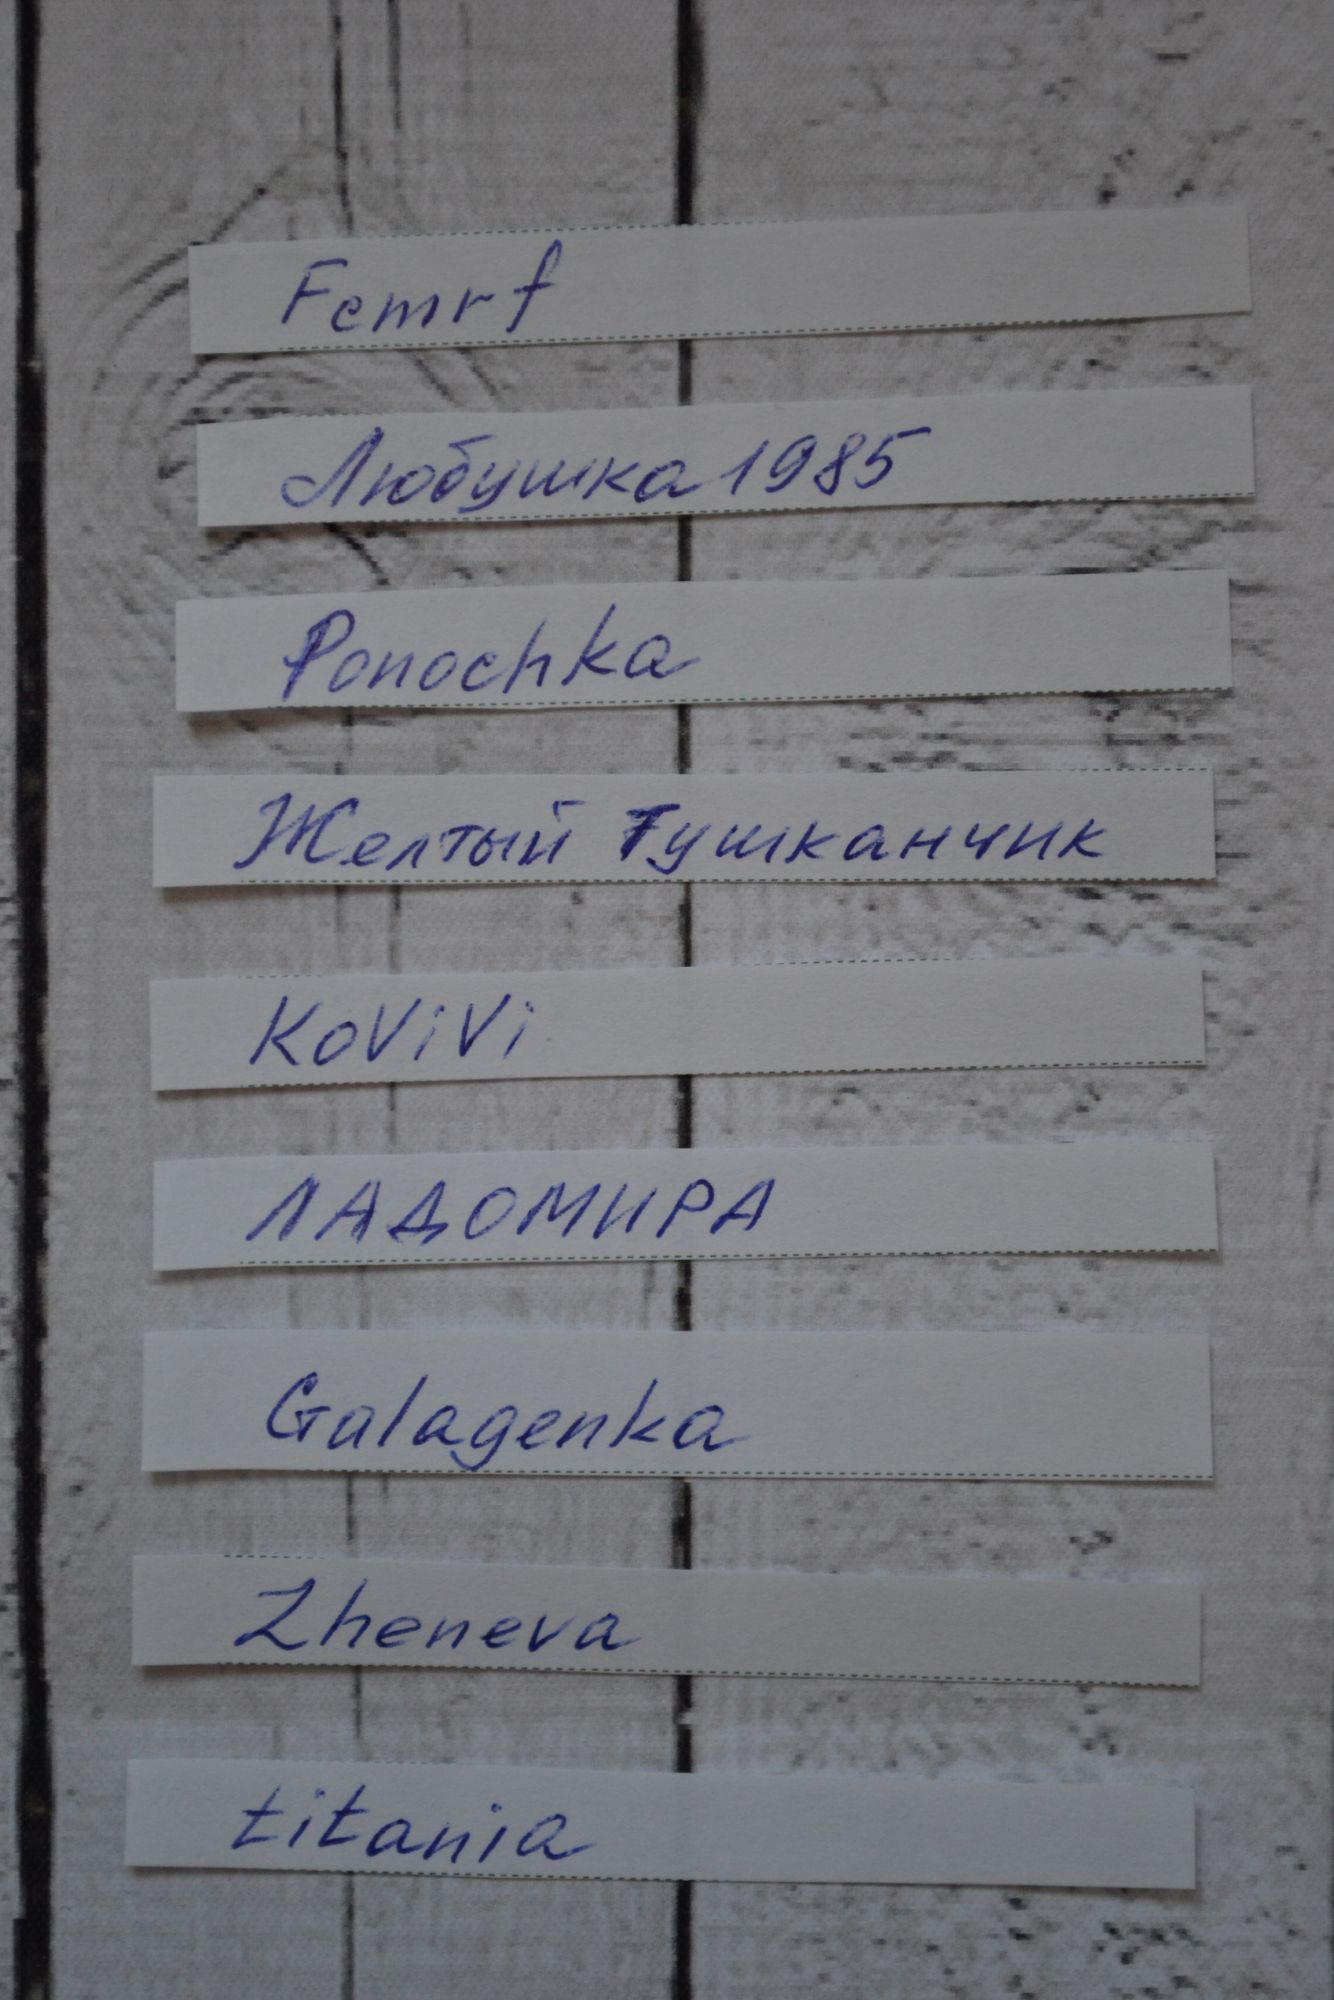 Femrf
Любушка1985
Ponochka
Желтый Тушканчик
KoViVi
ЛАДОМИРА
Galagenka
Zheneva
titania